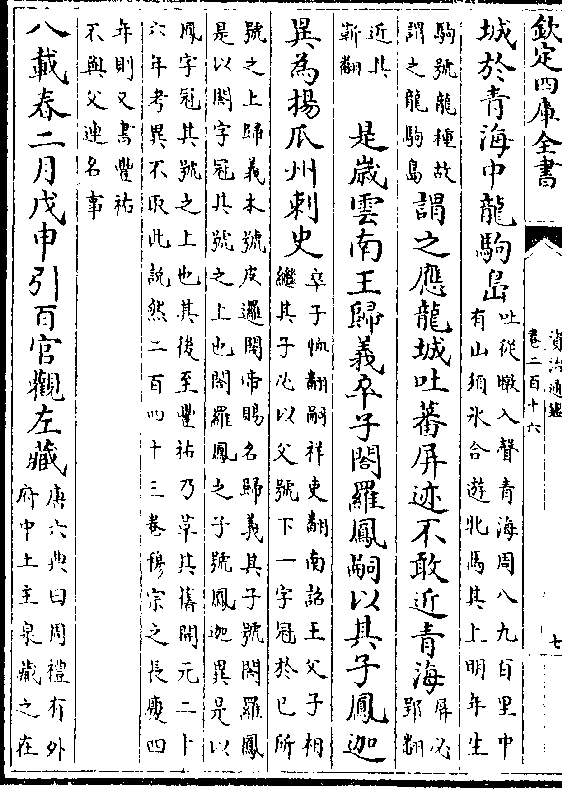 欽定四庫全書
資治通鑑
卷二百十六
七
城於青海中龍駒島
吐從暾入聲青海周八九百里中
有山須氷合遊牝馬其上明年生
駒號龍種故
謂之龍駒島
謂之應龍城吐蕃屏迹不敢近青海
屏必
郢翻
近其
靳翻
是歲雲南王歸義卒子閤羅鳳嗣以其子鳳迦
異為揚瓜州刺史
卒子恤翻嗣祥吏翻南詔王父子相
繼其子必以父號下一字冠於已所
號之上歸義本號皮邏閤帝賜名歸義其子號閤羅鳳
是以閤字冠其號之上也閤羅鳳之子號鳳迦異是以
鳳字冠其號之上也其後至豐祐乃革其舊開元二十
六年考異不取此說然二百四十三卷穆宗之長慶四
年則又書豐祐
不與父連名事
八載春二月戊申引百官觀左藏
唐六典曰周禮有外
府中士主泉藏之在